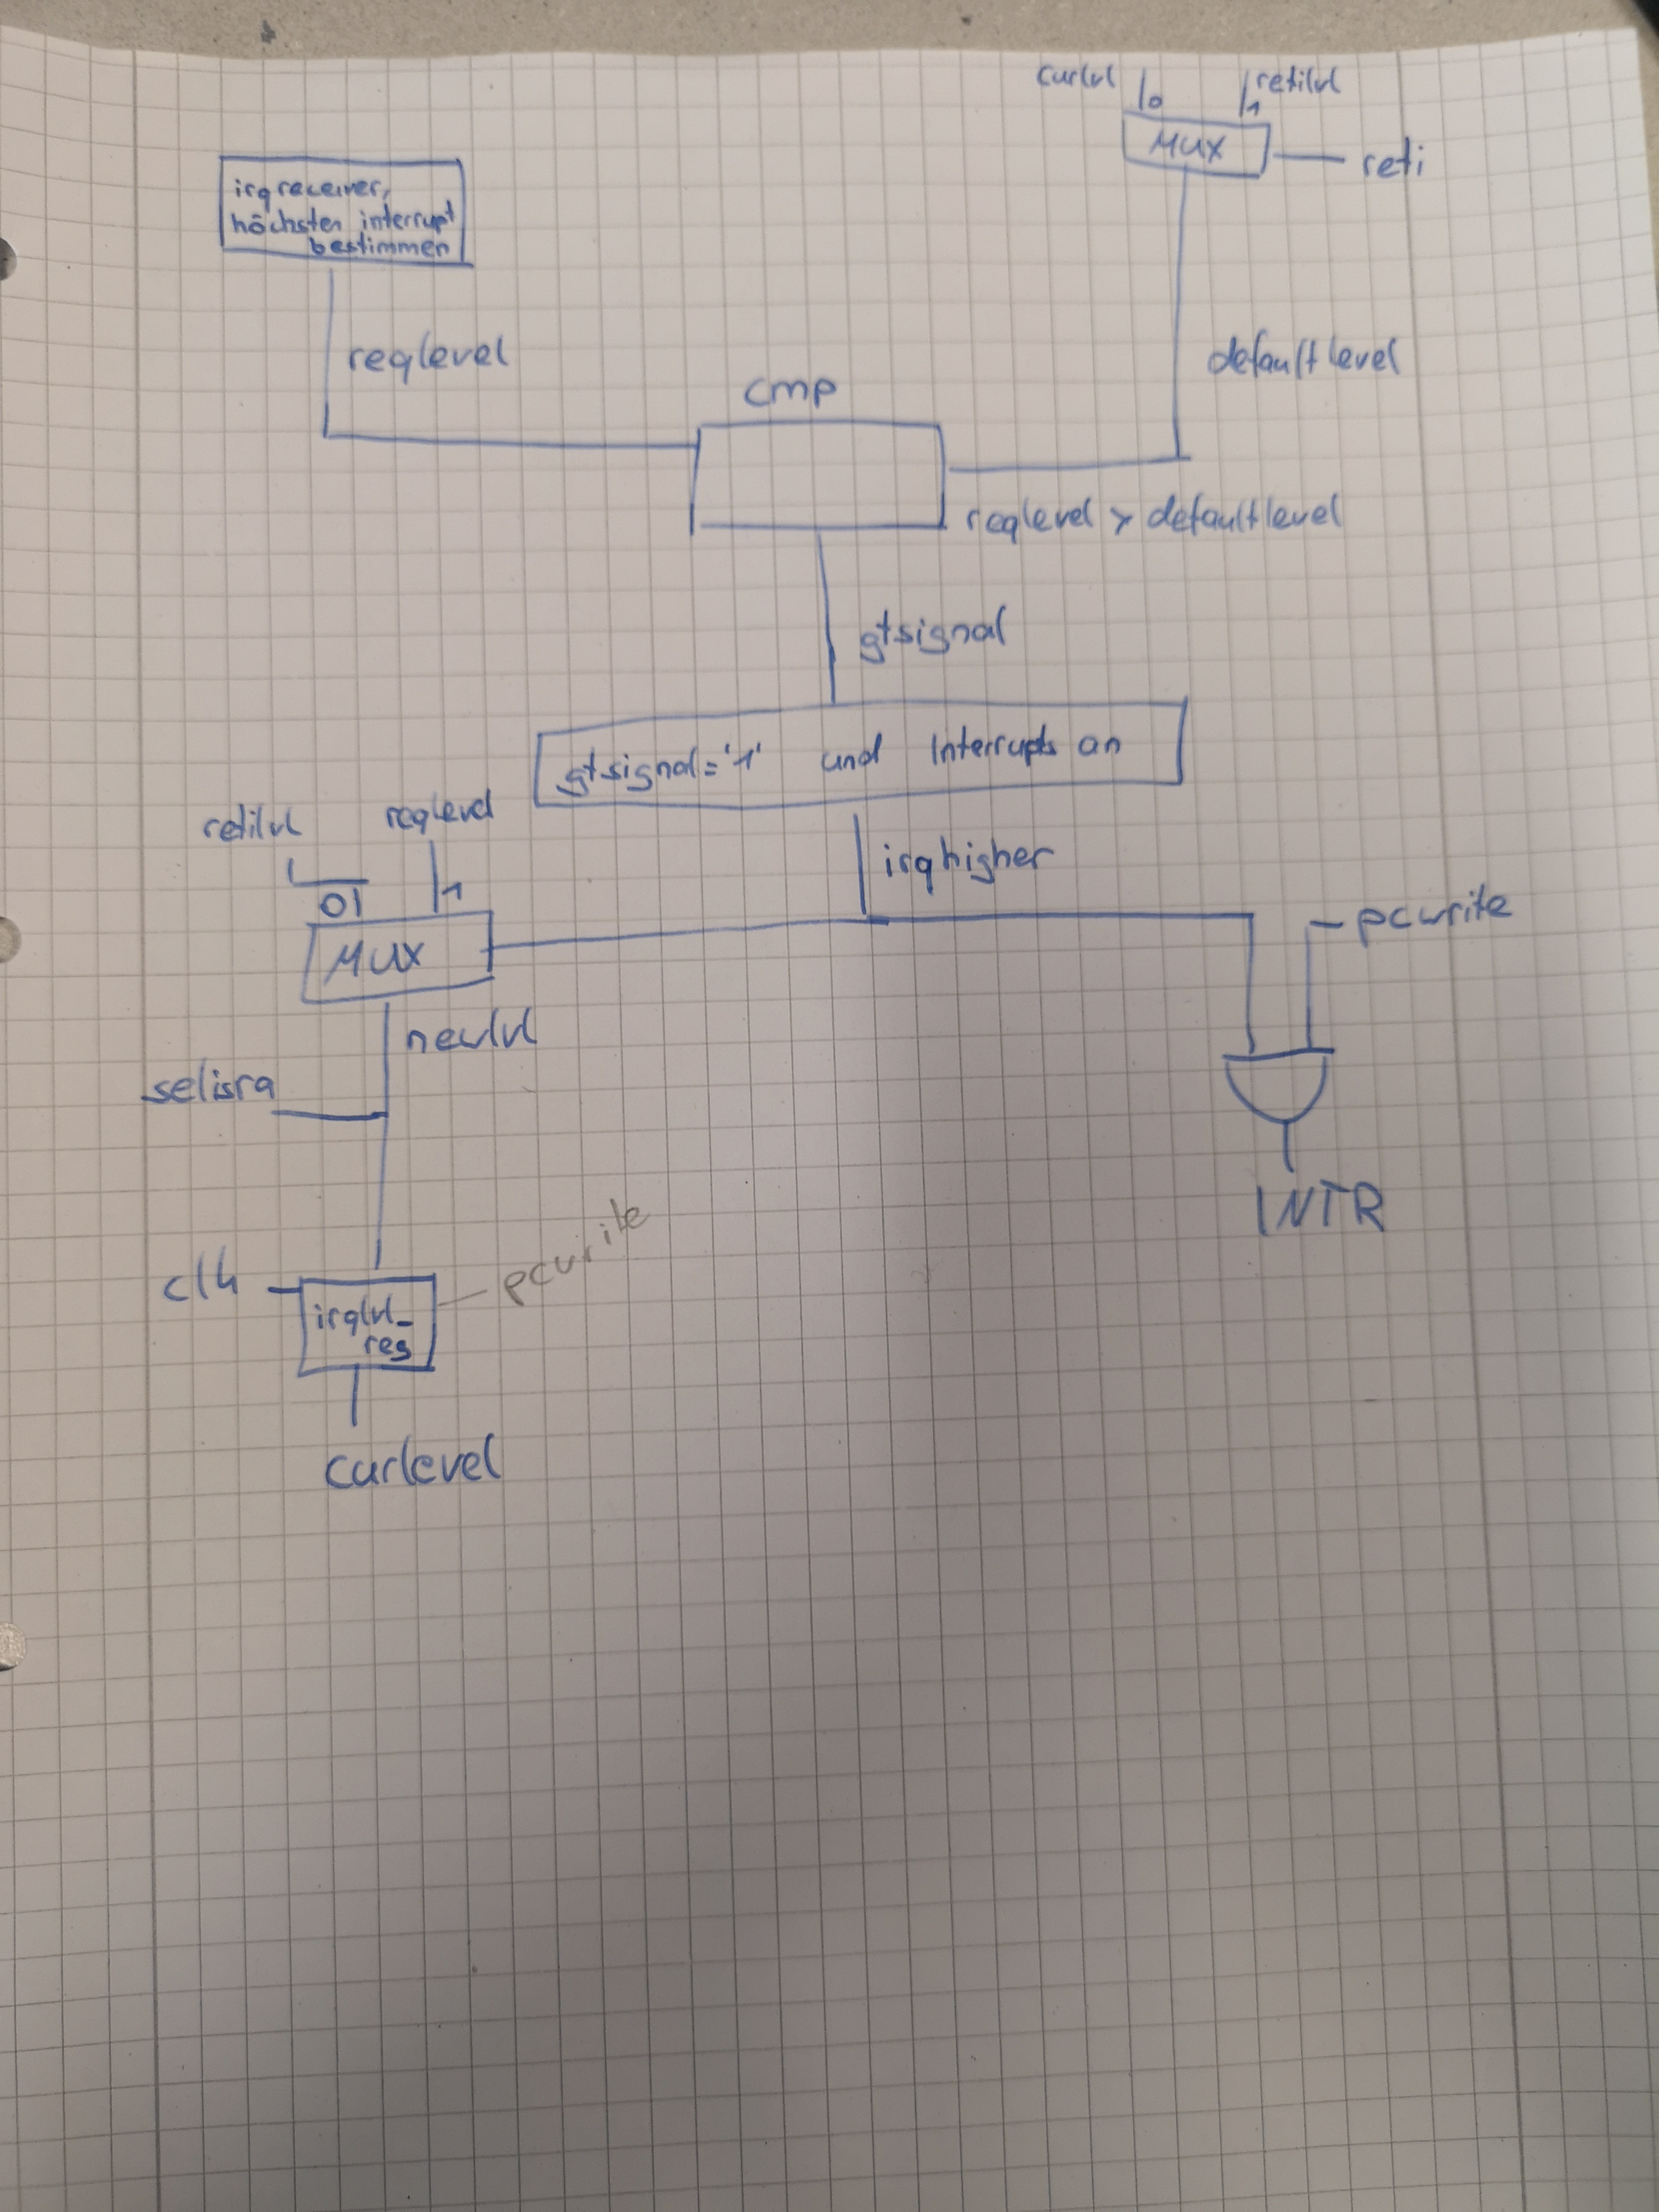 curlvl
0
1
retilvl
MUX
reti
irqreceiver,
höchsten interrupt
bestimmen
reqlevel
defaultlevel
cmp
reqlevel > defaultlevel
gtsignal
gtsignal='1' und Interrupts an
retilvl
reqlevel
irqhigher
0
1
MUX
pcwrite
newlvl
selisra
INTR
pcwrite
clk
irqlvl_
reg
curlevel